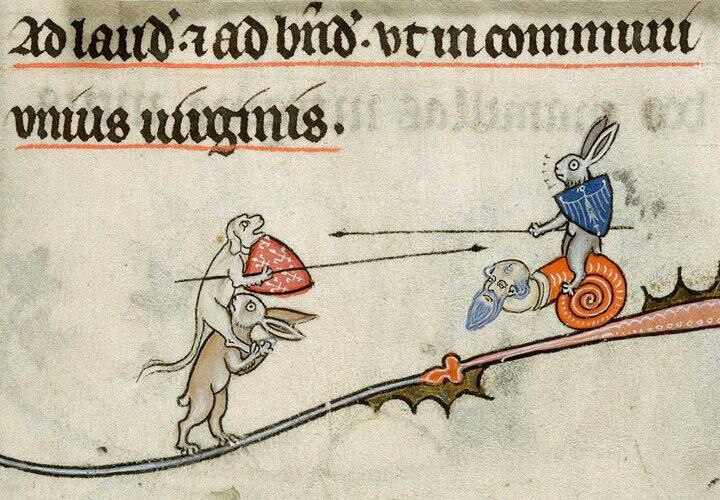 Ad laud̾. ⁊ ad bn̄d̾. vt in communi
vnius uirginis.